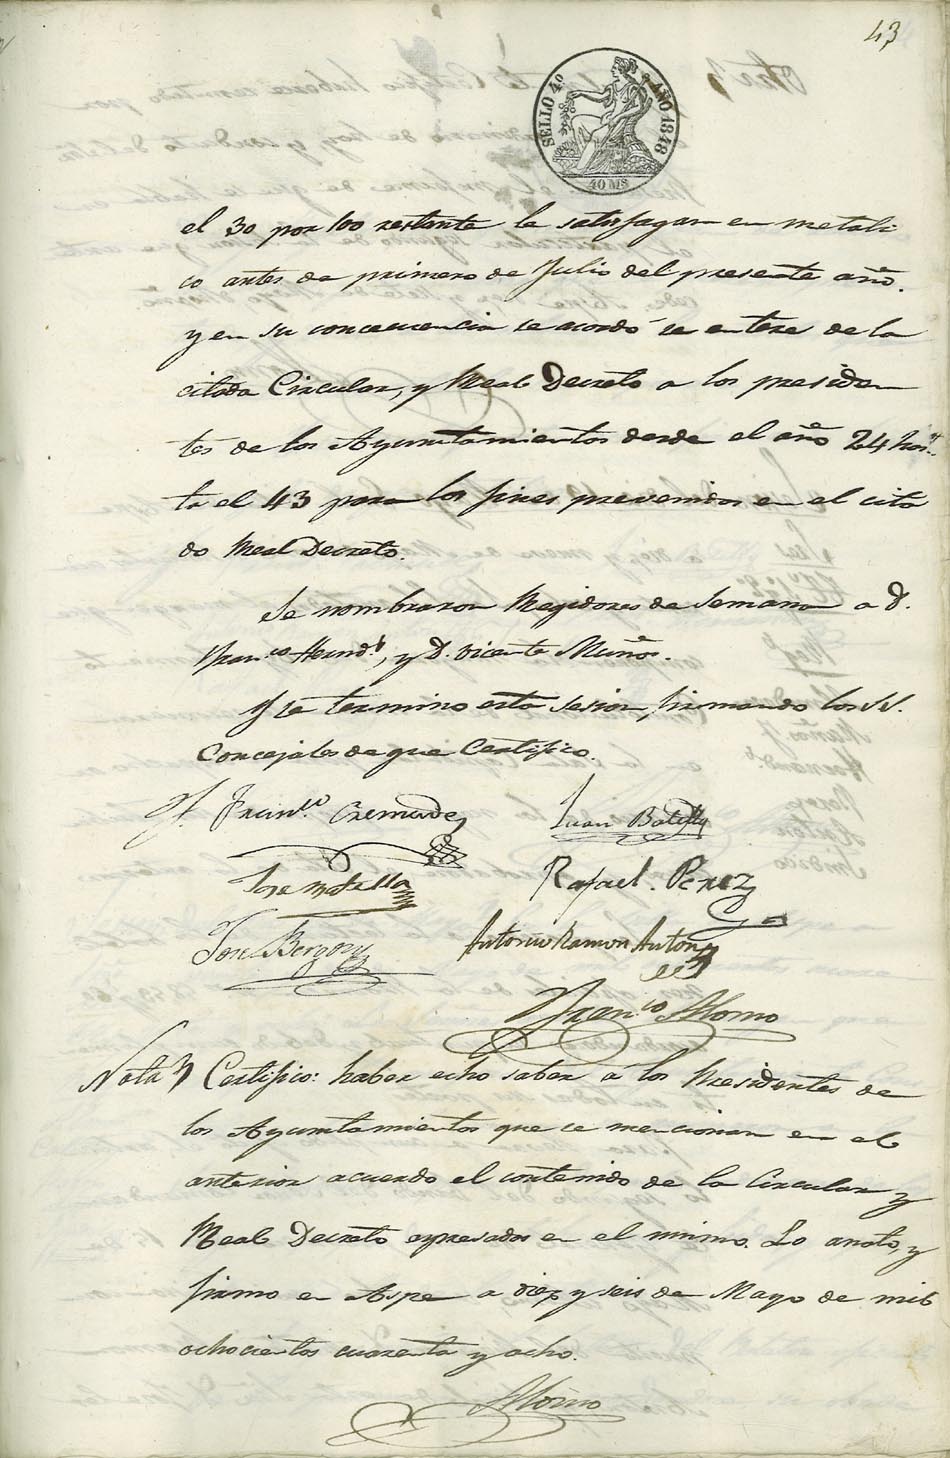 43
SELLO 4º AÑO 1848
40 MS
el 30 por 100 restante le satisfagan en metali
co antes de primero de Julio del presente año.
y en su concecuencia se acordó se entere de la
citada Circular, y Real Decreto a los presiden
tes de los Ayuntamientos desde el año 24 has
ta el 43 para los fines prevenidos en el cita
do Real Decreto.
Se nombraron Regidores de Semana a D.
Franco Hernd., y D. Vicente Muños.
Y se termino esta sesion, firmando los SS.
Concejales de que Certifico.
Franco Cremades
Juan Botella
Jose Botella
Rafael Perez
Jose Bergon
Antonio Ramon Anton
Franco Alorno
Nota Certifico: haber echo saber á los Presidentes de
los Ayuntamientos que se mencionan en el
anterior acuerdo el contenido de la Circular y
Real Decreto espresados en el mismo. Lo anoto, y
firmo en Aspe a diez y seis de Mayo de mil
ochocientos cuarenta y ocho.
Alorno